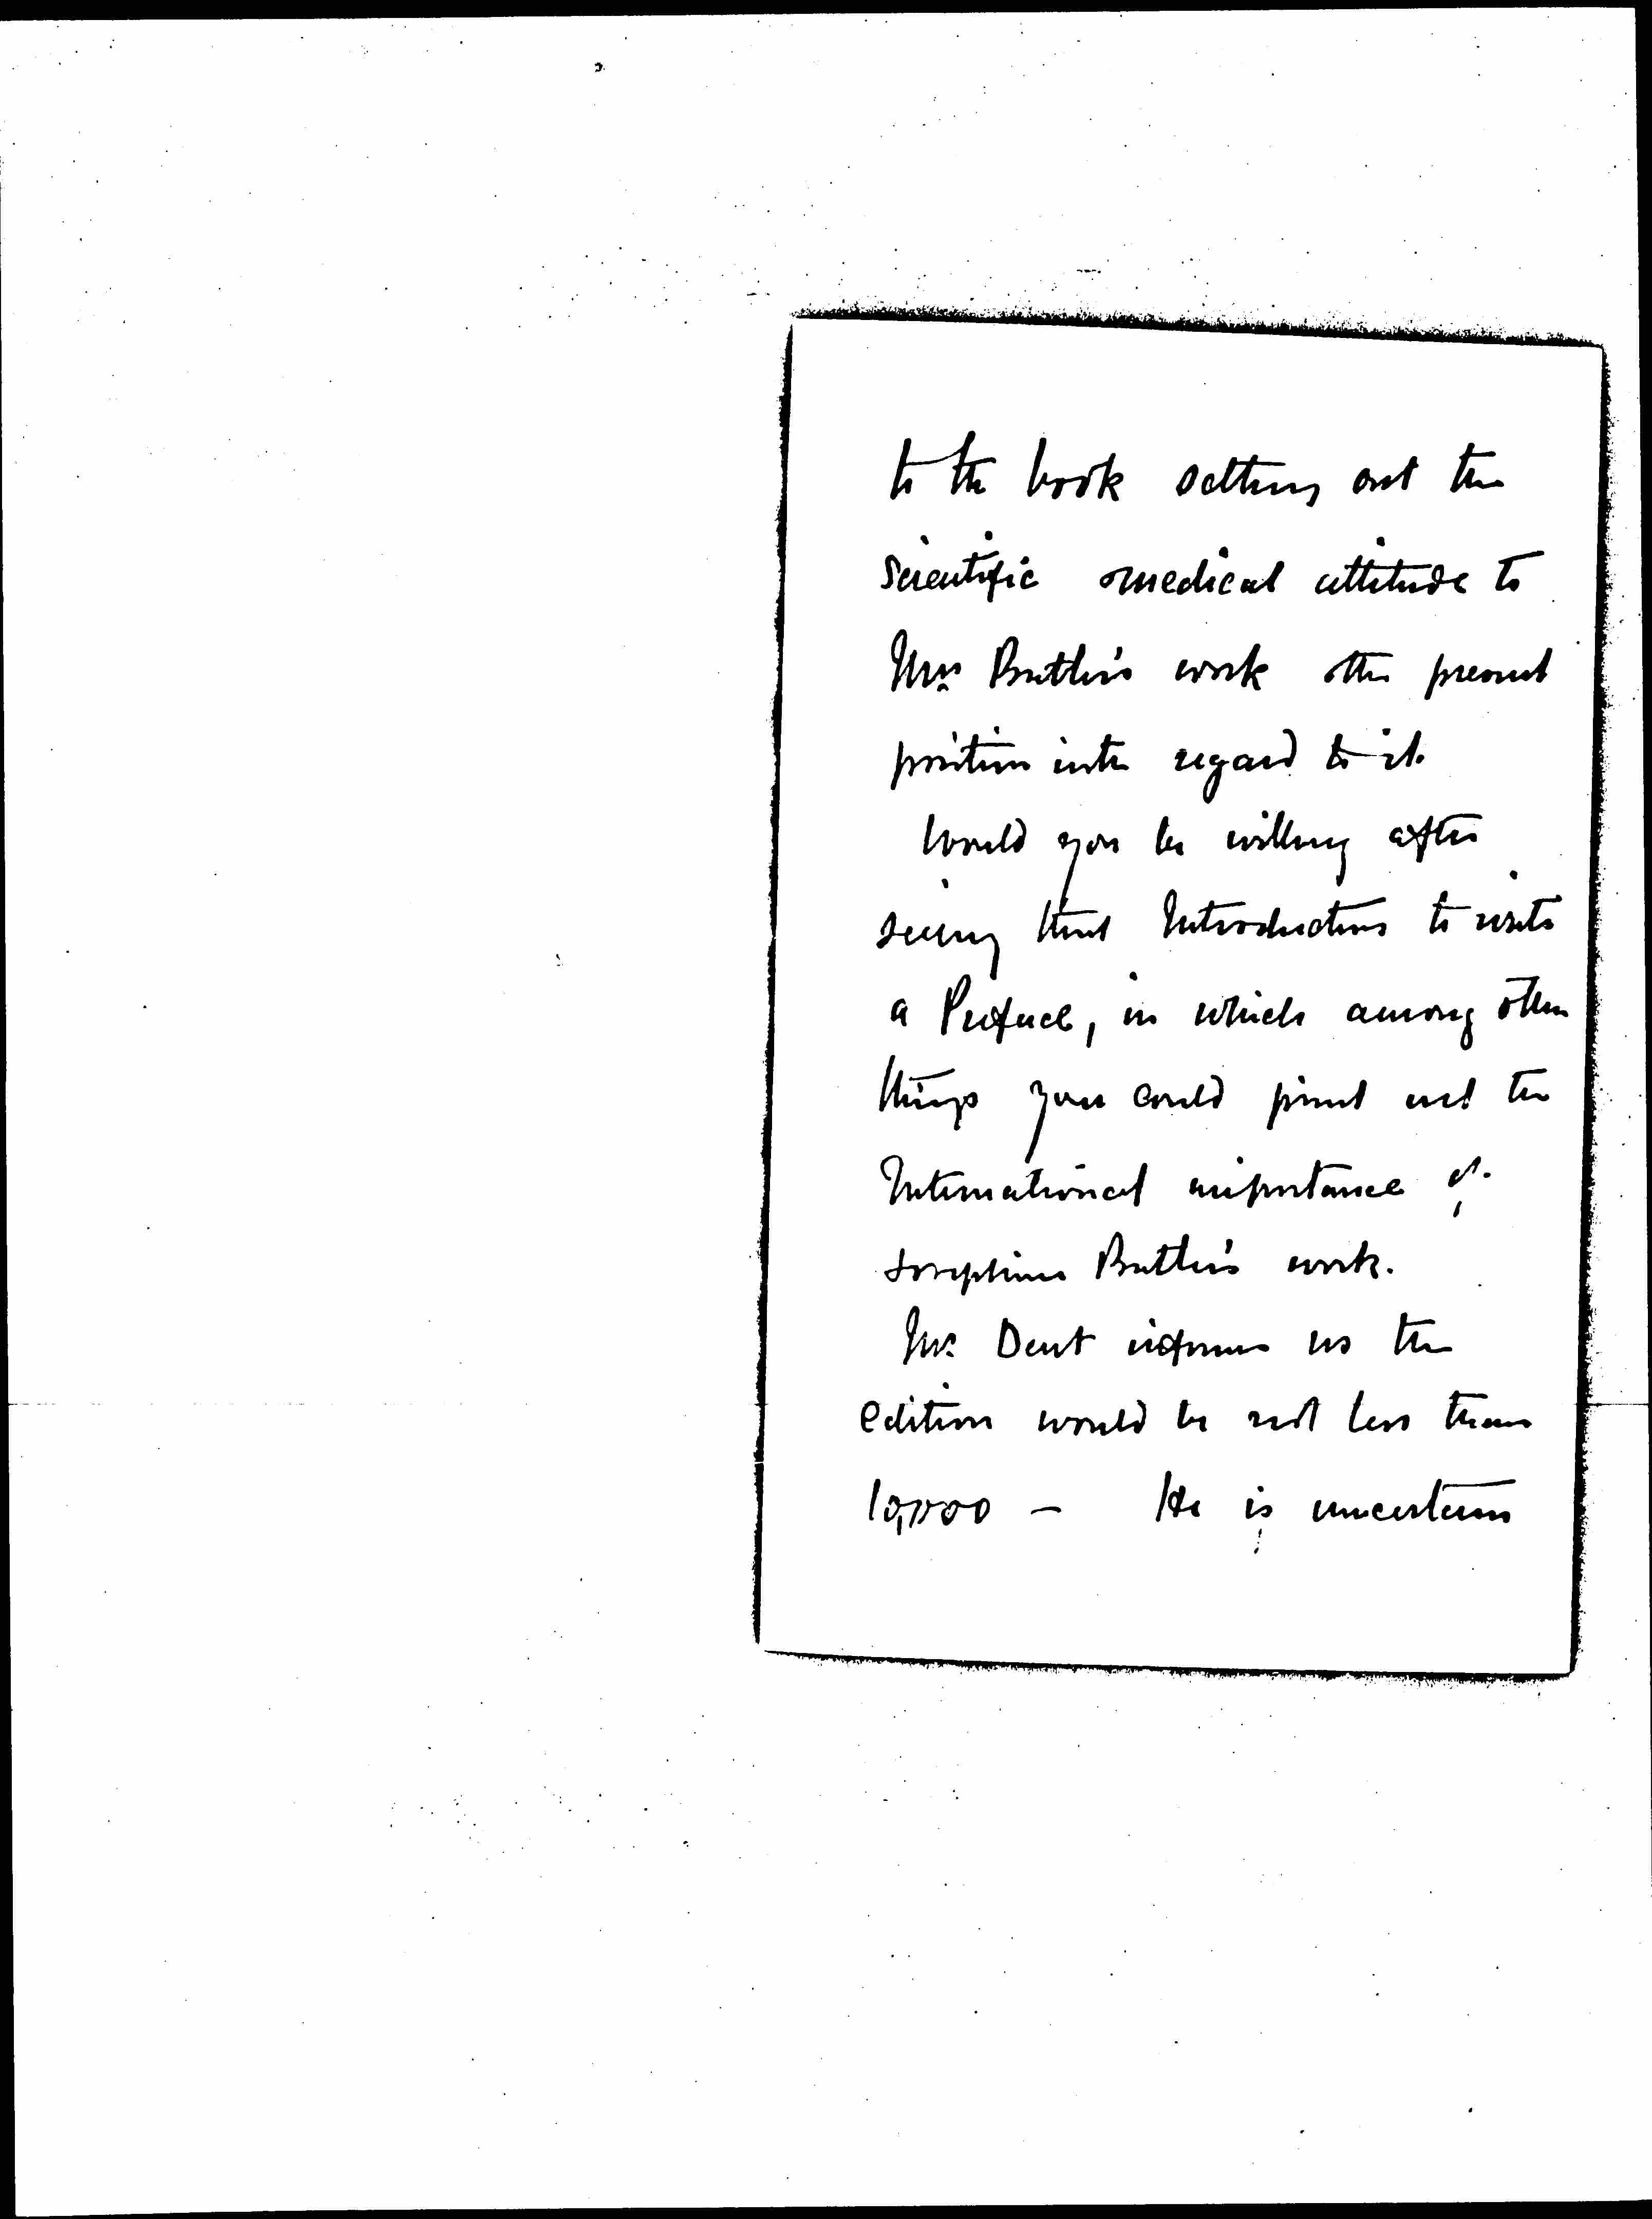 to the book setting out the
scientific & medical attitude to
Mrs Butler's work & the present
position with regard to it.
Would you be willing after
seeing that Introduction to write
a Preface, in which among other
things you could point out the
International importance of
Josephine Butler's work.
Mr Dent informs us the
edition would be not less than
10,000 – He is uncertain